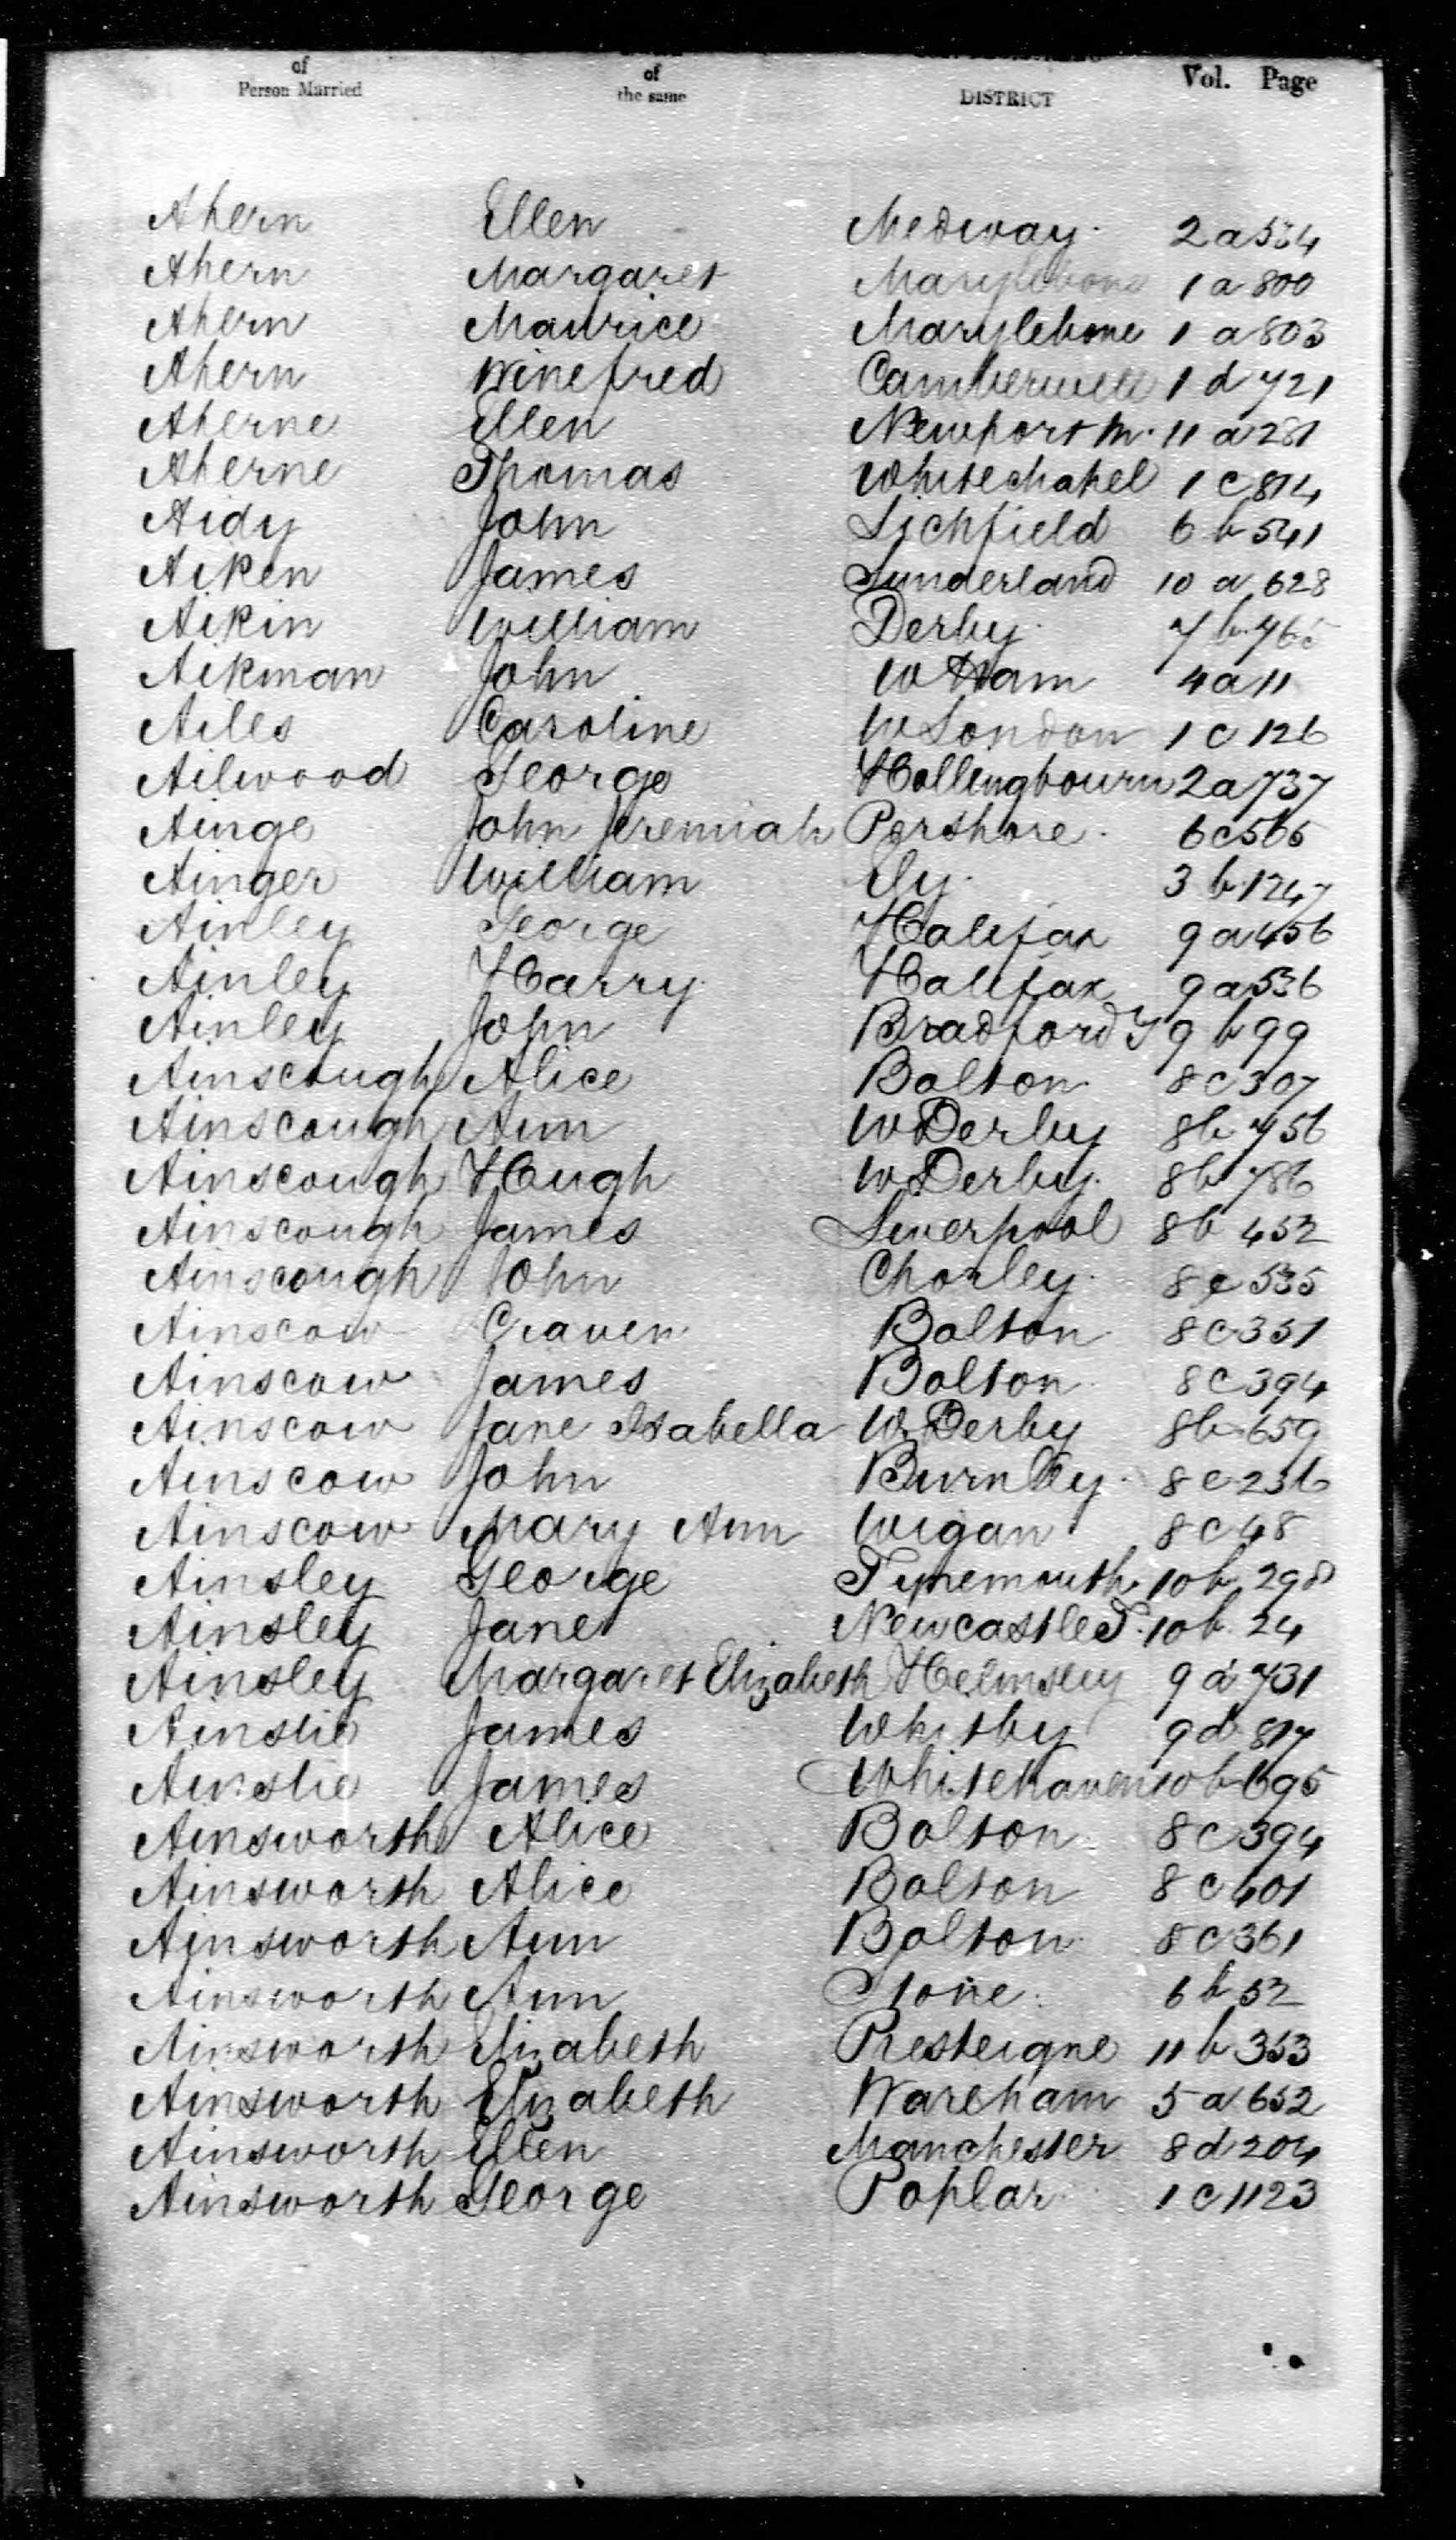 of of Vol. Page
Person Married the same DISTRICT
Ahern Ellen Medway 2a 534
Ahern Margaret Marylebone 1a 800
Ahern Maurice Marylebone 1a 803
Ahern Winefred Camberwell 1d 721
Aherne Ellen Newport M. 11a 281
Aherne Thomas Whitechapel 1c 814
Aidy John Lichfield 6b 541
Aiken James Sunderland 10a 628
Aikin William Derby 7b 765
Aikman John W Ham 4a 11
Ailes Caroline W London 1c 126
Ailwood George Hollingbourn 2a 737
Ainge John Jeremiah Pershore 6c 565
Ainger William Ely 3b 1247
Ainley George Halifax 9a 456
Ainley Harry Halifax 9a 536
Ainley John Bradford Y 9b 99
Ainscough Alice Bolton 8c 307
Ainscough Ann W Derby 8b 756
Ainscough Hugh W Derby 8b 786
Ainscough James Liverpool 8b 452
Ainscough John Chorley 8e 535
Ainscow Craven Bolton 8c 351
Ainscow James Bolton 8c 394
Ainscow Jane Isabella W. Derby 8b 659
Ainscow John Burnley 8e 236
Ainscow Mary Ann Wigan 8c 48
Ainsley George Tynemouth 10b 298
Ainsley Jane Newcastle T. 10b 24
Ainsley Margaret Elizabeth Helmsley 9d 731
Ainslie James Whitby 9d 817
Ainslie James Whitehaven 10b 695
Ainsworth Alice Bolton 8c 394
Ainsworth Alice Bolton 8c 401
Ainsworth Ann Bolton 8c 361
Ainsworth Ann Stone 6b 52
Ainsworth Elizabeth Presteigne 11b 353
Ainsworth Elizabeth Wareham 5a 652
Ainsworth Ellen Manchester 8d 204
Ainsworth George Poplar 1c 1123